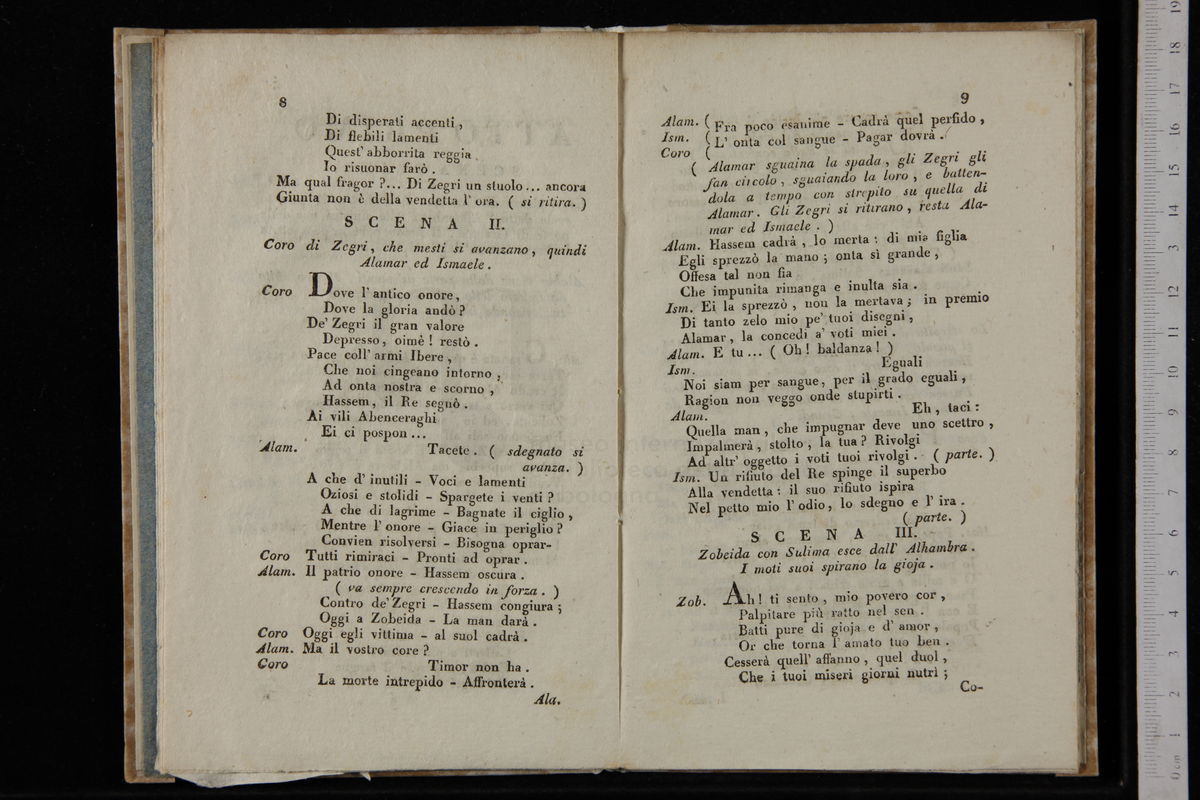 8
Di disperati accenti,
Di flebili lamenti
Quest' abborrita reggia
Io risuonar farò.
Ma qual fragor?... Di Zegri un stuolo... ancora
Giunta non è della vendetta l' ora. ( si ritira. )
SCENA II.
Coro di Zegri, che mesti si avanzano, quindi
Alamar ed Ismaele.
Coro Dove l' antico onore,
Dove la gloria andò?
De' Zegri il gran valore
Depresso, oimè! restò.
Pace coll' armi Ibere,
Che noi cingeano intorno,
Ad onta nostra e scorno,
Hassem, il Re segnò.
Ai vili Abenceraghi
Ei ci pospon...
Alam. Tacete. ( sdegnato si
avanza. )
A che d' inutili - Voci e lamenti
Oziosi e stolidi - Spargete i venti?
A che di lagrime - Bagnate il ciglio,
Mentre l' onore - Giace in periglio?
Convien risolversi - Bisogna oprar-
Coro Tutti rimiraci - Pronti ad oprar.
Alam. Il patrio onore - Hassem oscura.
( va sempre crescendo in forza. )
Contro de' Zegri - Hassem congiura;
Oggi a Zobeida - La man darà.
Coro Oggi egli vittima - al suol cadrà.
Alam. Ma il vostro core?
Coro Timor non ha.
La morte intrepido - Affronterà.
Ala.
9
Alam. ( Fra poco esanime - Cadrà quel perfido,
Ism. ( L' onta col sangue - Pagar dovrà.
Coro (
( Alamar sguaina la spada, gli Zegri gli
fan circolo, sguaiando la loro, e batten-
dola a tempo con strepito su quella di
Alamar. Gli Zegri si ritirano, resta Ala-
mar ed Ismaele. )
Alam. Hassem cadrà, lo merta: di mia figlia
Egli sprezzò la mano; onta sì grande,
Offesa tal non fia
Che impunita rimanga e inulta sia.
Ism. Ei la sprezzò, non la mertava; in premio
Di tanto zelo mio pe' tuoi disegni,
Alamar, la concedi a' voti miei.
Alam. E tu... ( Oh! baldanza! )
Ism. Eguali
Noi siam per sangue, per il grado eguali,
Ragion non veggo onde stupirti.
Alam. Eh, taci:
Quella man, che impugnar deve uno scettro,
Impalmerà, stolto, la tua? Rivolgi
Ad altr' oggetto i voti tuoi rivolgi. ( parte. )
Ism. Un rifiuto del Re spinge il superbo
Alla vendetta: il suo rifiuto ispira
Nel petto mio l' odio, lo sdegno e l' ira.
( parte. )
SCENA III.
Zobeida con Sulima esce dall' Alhambra.
I moti suoi spirano la gioja.
Zob. Ah! ti sento, mio povero cor,
Palpitare più ratto nel sen.
Batti pure di gioja e d' amor,
Or che torna l' amato tuo ben.
Cesserà quell' affanno, quel duol,
Che i tuoi miseri giorni nutrì;
Co-